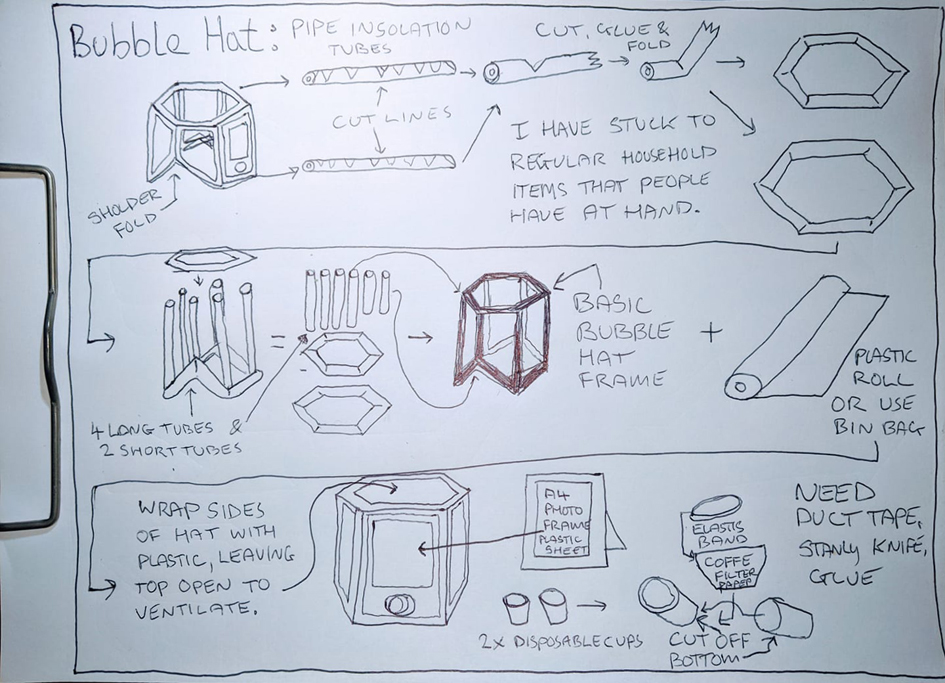 Bubble Hat:
PIPE INSOLATION
TUBES
CUT, GLUE &
FOLD
CUT LINES
SHOLDER
FOLD
I HAVE STUCK TO
REGULAR HOUSEHOLD
ITEMS THAT PEOPLE
HAVE AT HAND.
=
BASIC
BUBBLE
HAT
FRAME
+
PLASTIC
ROLL
OR USE
BIN BAG
4 LONG TUBES &
2 SHORT TUBES
WRAP SIDES
OF HAT WITH
PLASTIC, LEAVING
TOP OPEN TO
VENTILATE.
A4
PHOTO
FRAME
PLASTIC
SHEET
2X DISPOSABLE CUPS
ELASTIS
BAND
COFFE
FILTER
PAPER
CUT OFF
BOTTOM
NEED
DUCT TAPE,
STANLY KNIFE,
GLUE